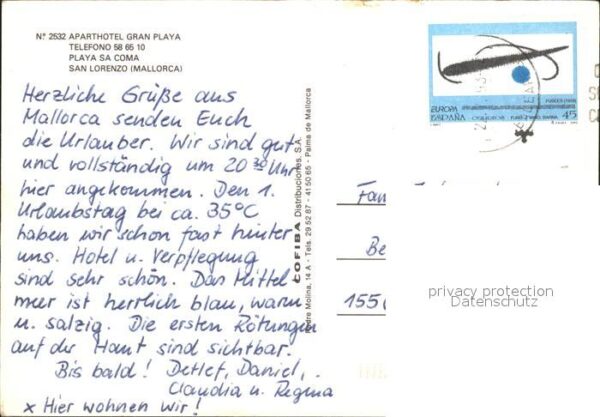 N.º 2532 APARTHOTEL GRAN PLAYA
TELEFONO 58 65 10
PLAYA SA COMA
SAN LORENZO (MALLORCA)
Herzliche Grüße aus
Mallorca senden Euch
die Urlauber. Wir sind gut
und vollständig um 20 30 Uhr
hier angekommen. Den 1.
Urlaubstag bei ca. 35°C
haben wir schon fast hinter
uns. Hotel u. Verpflegung
sind sehr schön. Das Mittel-
meer ist herrlich blau, warm
u. salzig. Die ersten Rötungen
auf der Haut sind sichtbar.
Bis bald! Detlef, Daniel,
Claudia u. Regina
x Hier wohnen wir!
COFIBA Distribuciones, S.A.
Molina, 14 A - Tels. 29 52 87 - 41 50 65 - Palma de Mallorca
EUROPA
ESPAÑA
45
Fam
Be
155
privacy protection
Datenschutz